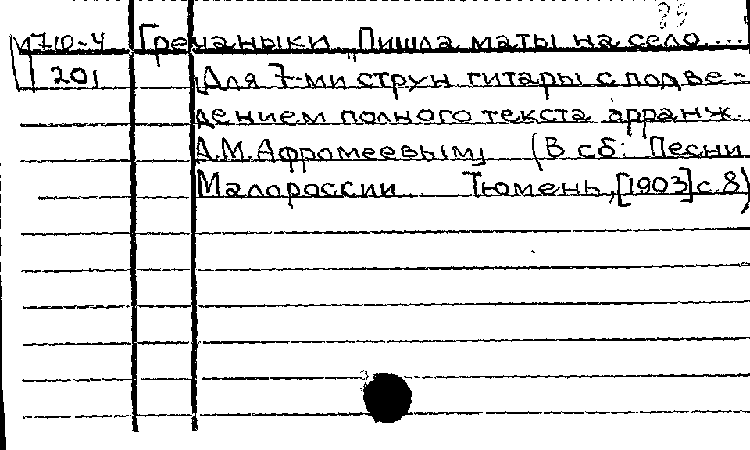 М710-4 Гречаныки „Пишла маты на село....
201 [Для 7-ми струн гитары с подве=
дением полного текста арранж.
А.М.Афромеевым] (В сб: Песни
Малороссии... Тюмень,[1903]с.8)